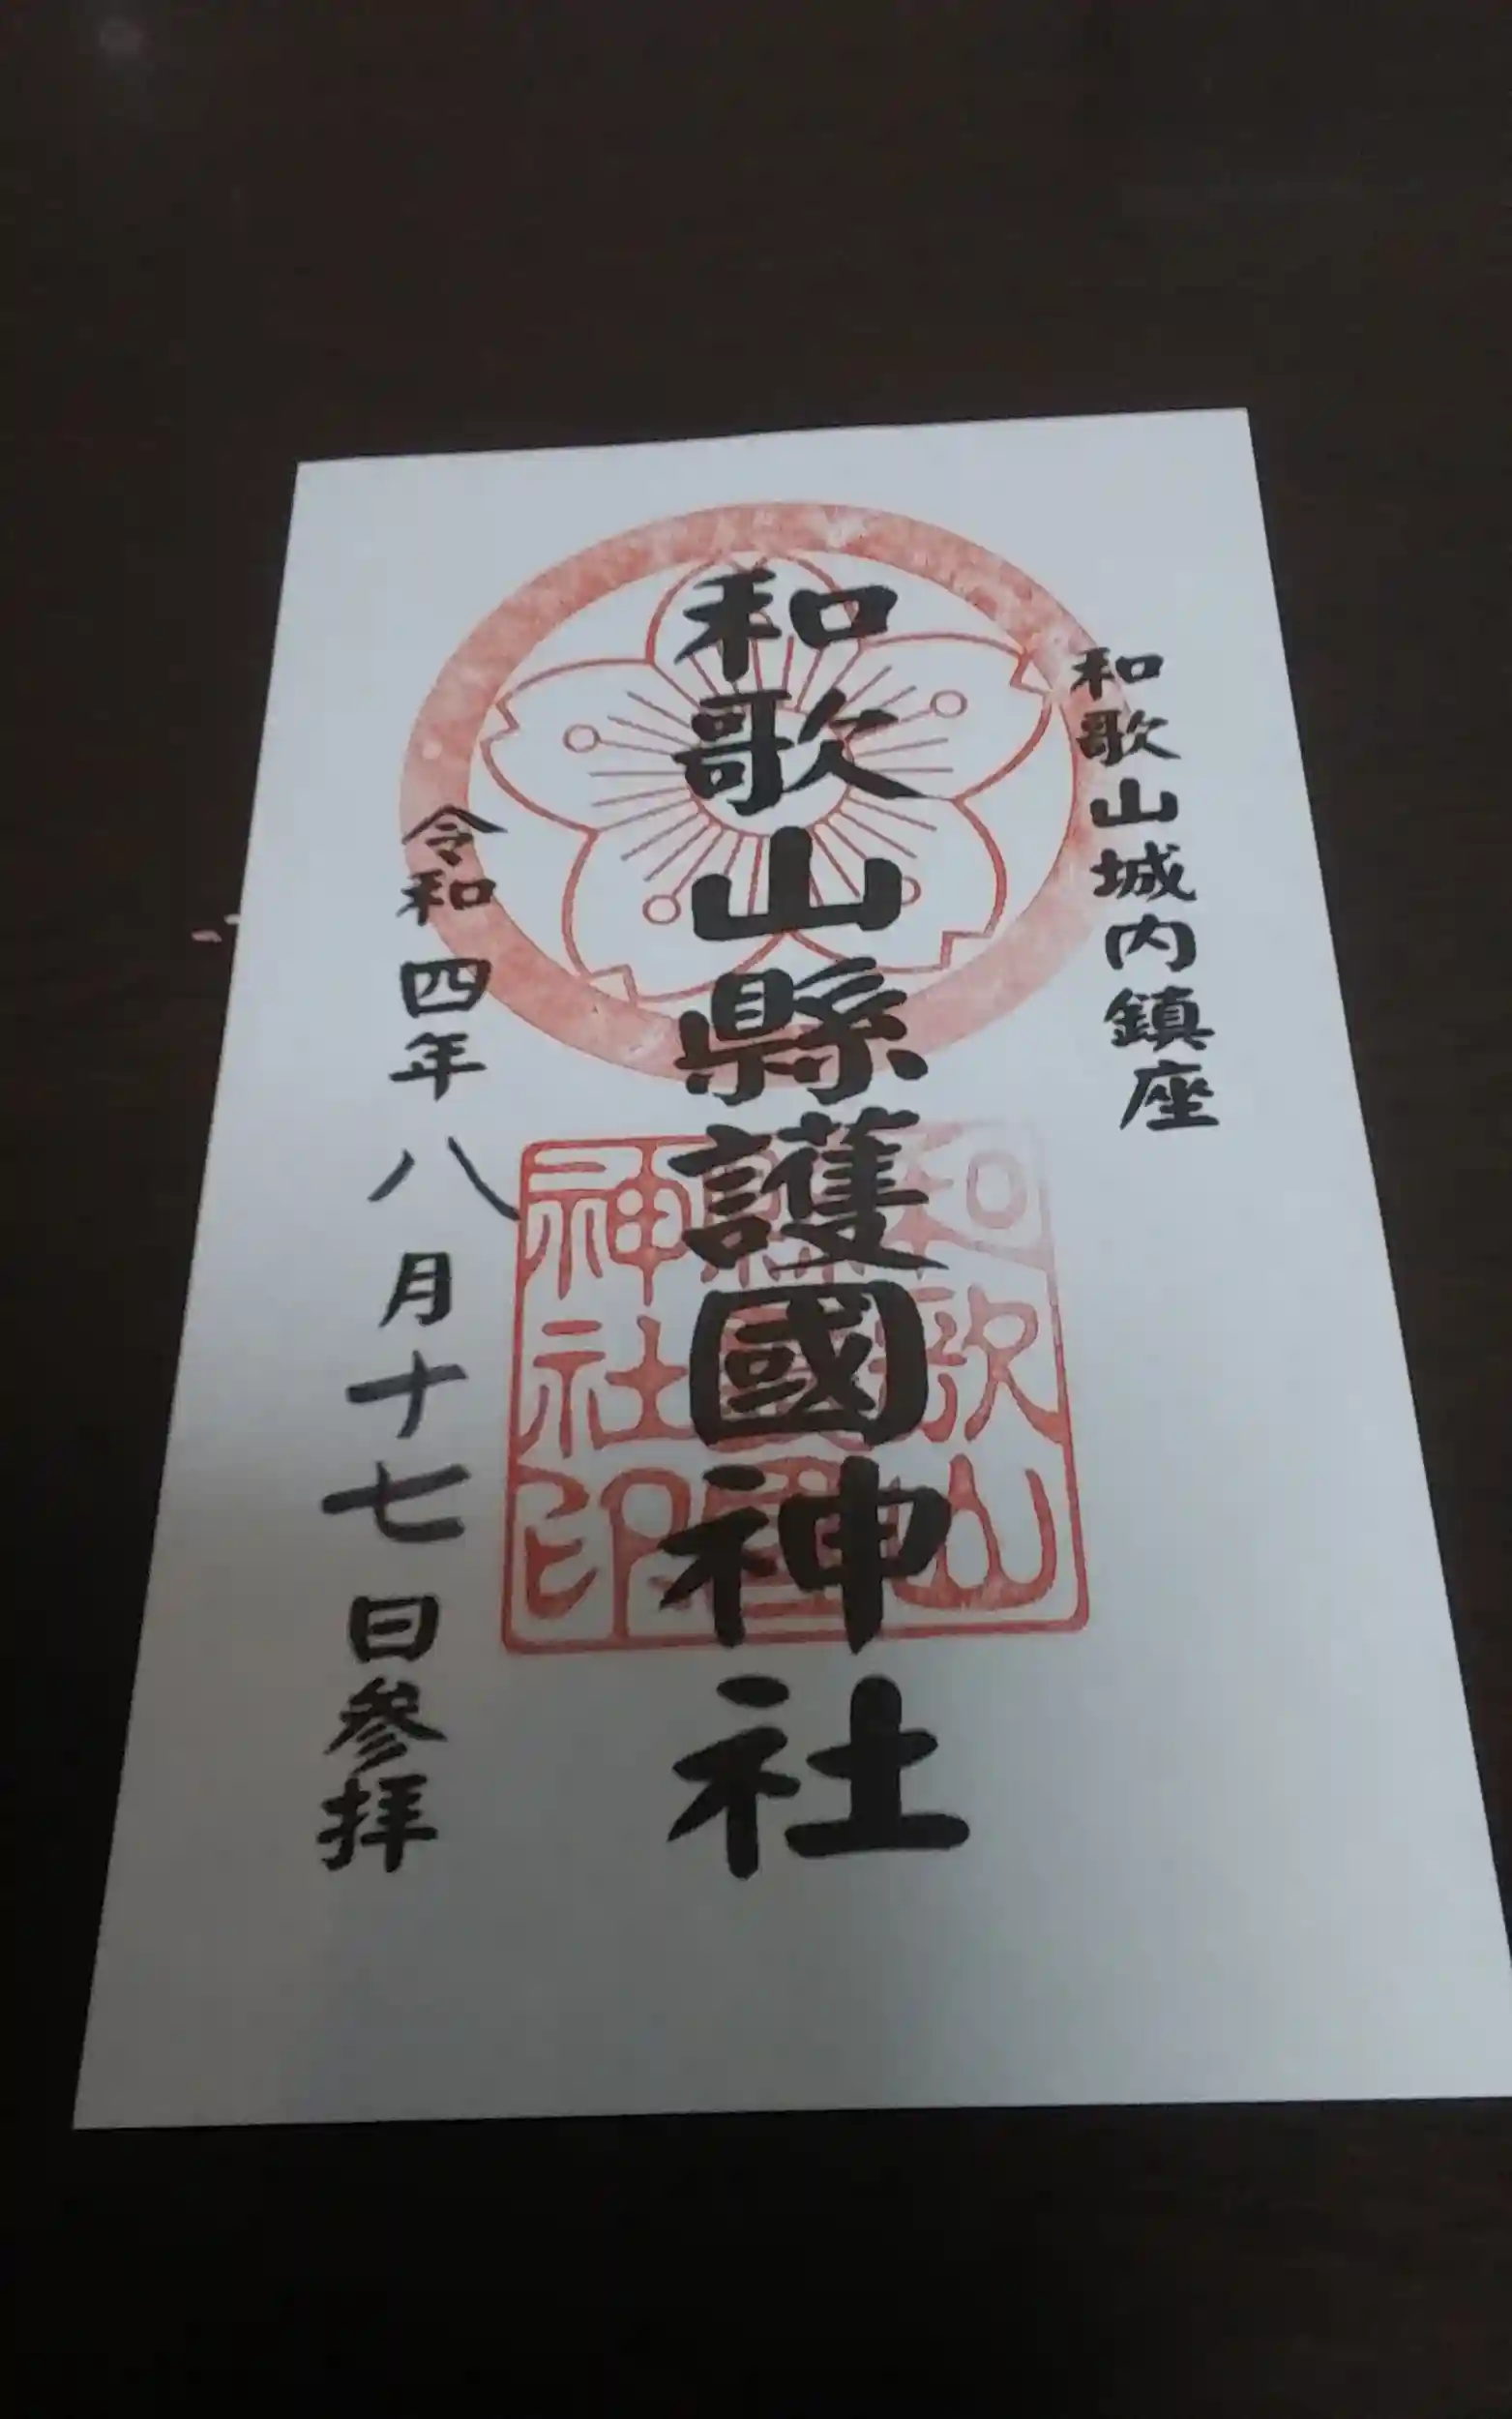 和歌山城内鎮座
和歌山縣護國神社
令和四年八月十七日参拝
和歌山
神社印